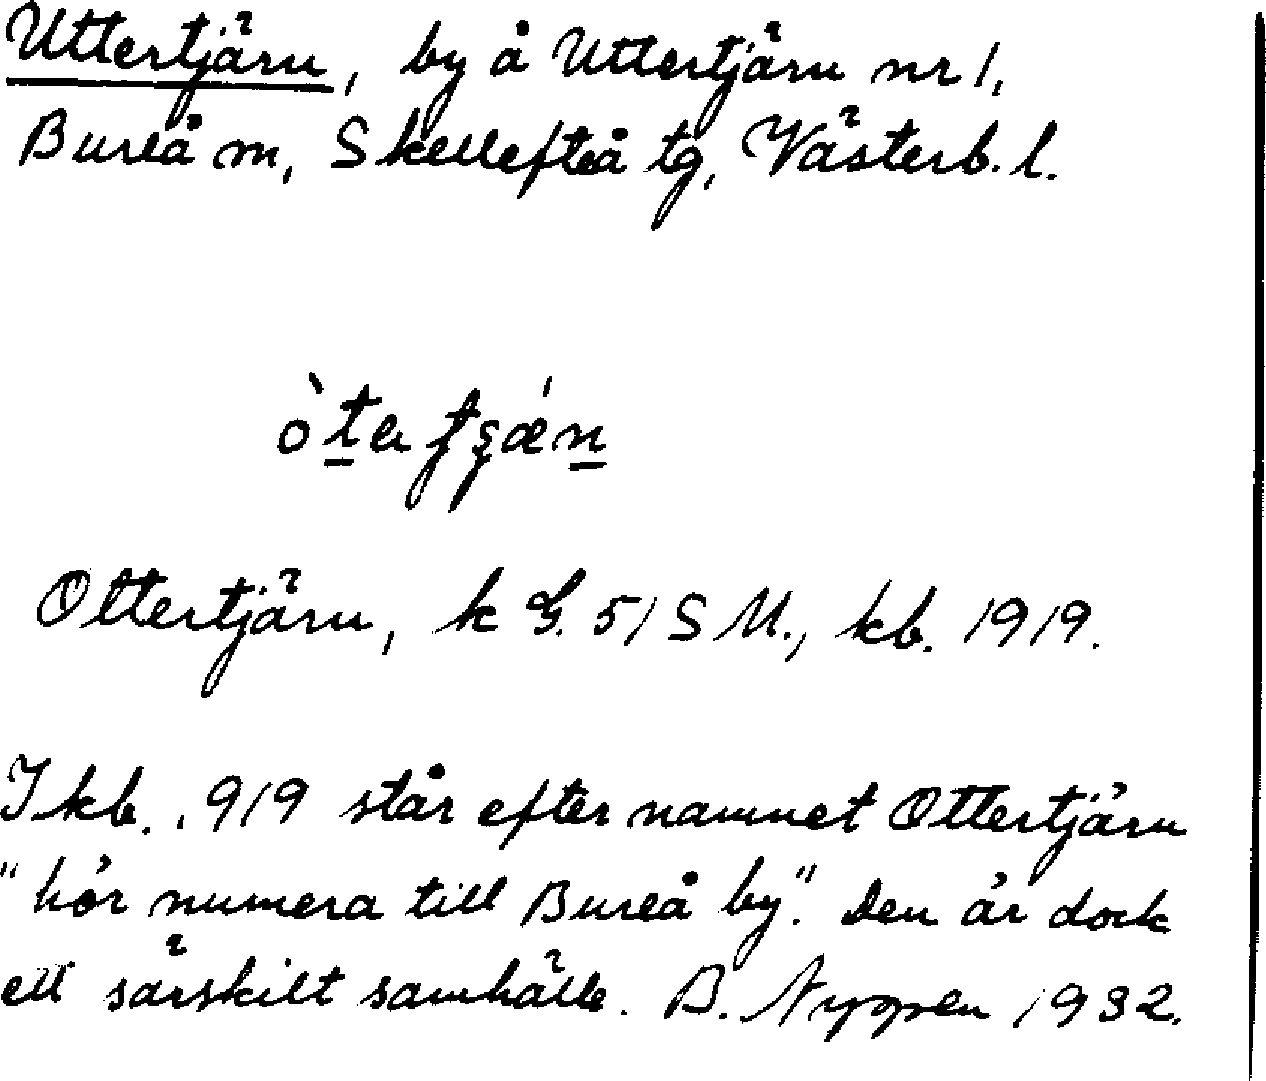 Uttertjärn, by å Uttertjärn nr 1,
Bureå m, Skellefteå tg, Västerb. l.
òta tʂǽn
Ottertjärn, k G. 51 S M., kb. 1919.
I kb. 1919 står efter namnet Ottertjärn
"hör numera till Bureå by". Den är dock
ett särskilt samhälle. B. 1932.